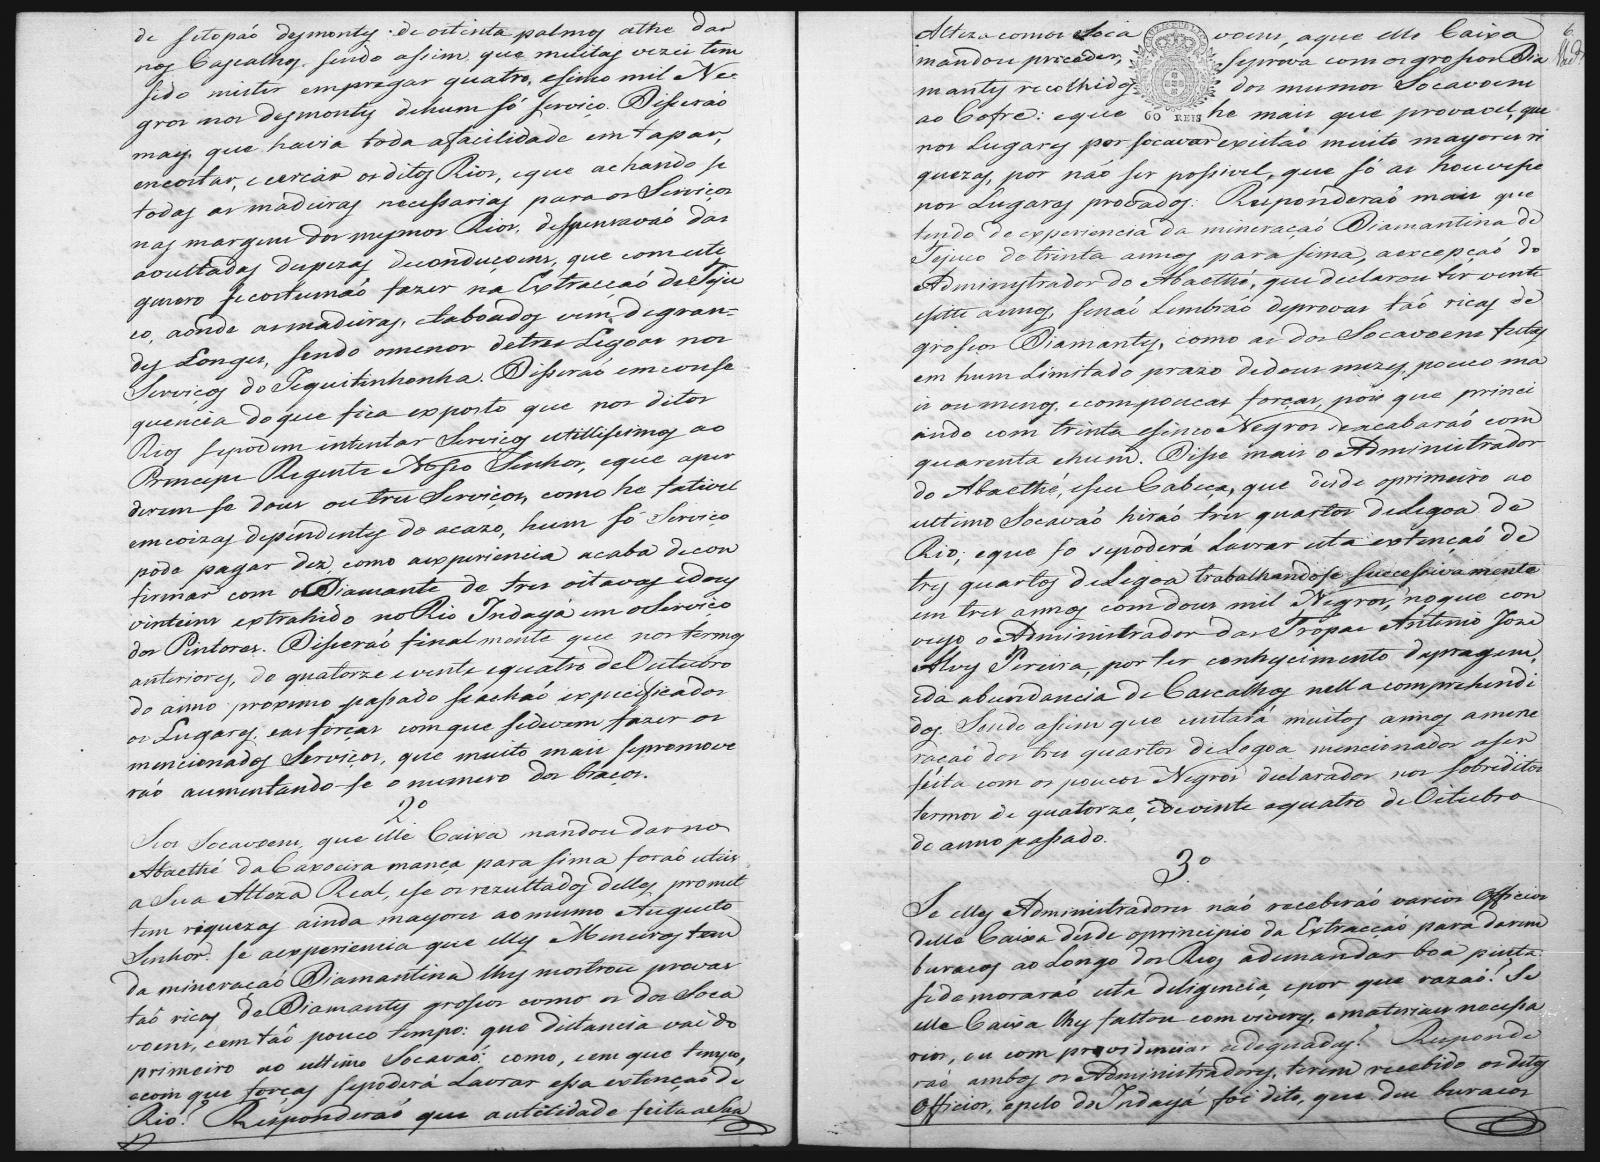 de setopaó desmontes de oitenta palmos athe dar
nos Cascalhos, sendo assim que muitas vezes tem
sido mister empregar quatro, esinco mil Ne-
gros nos desmontes dehum só serviço. Disseraó
mais, que havia toda afacilidade em tapar,
encostar, e cercar os ditos Rios, eque achando se
todas as madeiras necessarias para os Serviços
nas margens dos mesmos Rios, despensavaó das
avultadas despezas deconduçoens, que com este
genero se costumaó fazer na Extracçaó do Teju
co, aonde as madeiras, etaboados vem de gran-
des Longes, sendo omenor detres Legoas nos
Serviços do Jequitinhonha. Disseraó em conse
quencia do que fica exposto que nos ditos
Rios sepodem intentar Serviços utillissimos ao
Principe Regente Nosso Senhor, eque aper
derem se dous ou tres Serviços, como he fativel
em coizas dependentes do acazo, hum só Serviço
pode pagar dez, como aexperiencia acaba decon
firmar com oDiamante de tres oitavas edous
vinteins extrahido no Rio Indayá em oServico
dos Pintores. Disseraó finalmente que nos termos
anteriores, de quatorze evente equatro de Outubro
do anno proximo passado seachaó expecificados
os Lugares, eas forças com que sedevem fazer os
mencionados Serviços, que muito mais sepromove
ráó aumentando-se o numero dos braços.
2º
Se os Socavoens, que elle Caixa mandou dar no
Abaethé da Caxoeira mança para sima foraó uteis
a Sua Alteza Real, ese os rezultados delles promet
tem riquezas ainda mayores ao mesmo Augusto
Senhor: se aexperiencia que elles Mineiros tem
da mineraçaó Diamantina lhes mostrou provas
taó ricas de Diamantes grossos como os dos Soca
voens, eem taó pouco tempo: que distancia vai do
primeiro ao ultimo Socavaó: como, eem que tempo,
ecom que forças sepoderá Lavrar essa extençaó de
Rio? Responderaó que autelidade feita aSua
6
Alteza com os Soca voens, aque elle Caixa
mandou proceder, seprova com os grossos Dia
mantes recolhidos dos mesmos Socavoens
ao Cofre: eque he mais que provavel, que
60 REIS
nos Lugares por socavar existaó muito mayores ri
quezas, por naó ser possivel, que só as houvesse
nos Lugares provados: Responderaó mais que
tendo de experiencia da mineraçaó Diamantina do
Tejuco de trinta annos para sima, aexcepçaó do
Administrador do Abaethé, que declarou ter vente
esette annos, senaó Lembraó deprovas taó ricas de
grossos Diamantes, como as dos Socavoens feitos
em hum Limitado prazo dedous mezes, pouco ma
is ou menos, ecom poucas forças, pois que princi
ando com trinta esinco Negros seacabaraó com
quarenta ehum. Disse mais o Administrador
do Abaethé, eseu Cabeça, que desde oprimeiro ao
ultimo Socavaó hiraó tres quartos deLegoa de
Rio, eque so sepoderá Lavrar esta extençaó de
tres quartos deLegoa trabalhandose successivamente
em tres annos com dous mil Negros, noque con
veyo o Administrador das Tropas Antonio Joze
Alves Pereira, por ter conhecimento daparagem,
eda abundancia de Cascalhos nella comprehendi
dos. Sendo assim que custará muitos annos amine
raçaó dos tres quartos deLegoa mencionados aser
feita com os poucos Negros declarados nos sobreditos
termos de quatorze, edevinte equatro de Oitubro
do anno passado.
3º
Se elles Administradores naó receberaó varios Officios
delle Caixa desde oprincipio da Extracçaó para darem
buracos ao Longo dos Rios ademandar boa pinta:
sedemoraraó esta diligencia, epor que razaó? Se
elle Caixa lhes faltou com viveres, emateriaes necessa
rios, ou com providencias adequadas? Responde
raó ambos os Administradores, terem recebido os ditos
Officios, epelo do Indayá foi dito, que deu buracos